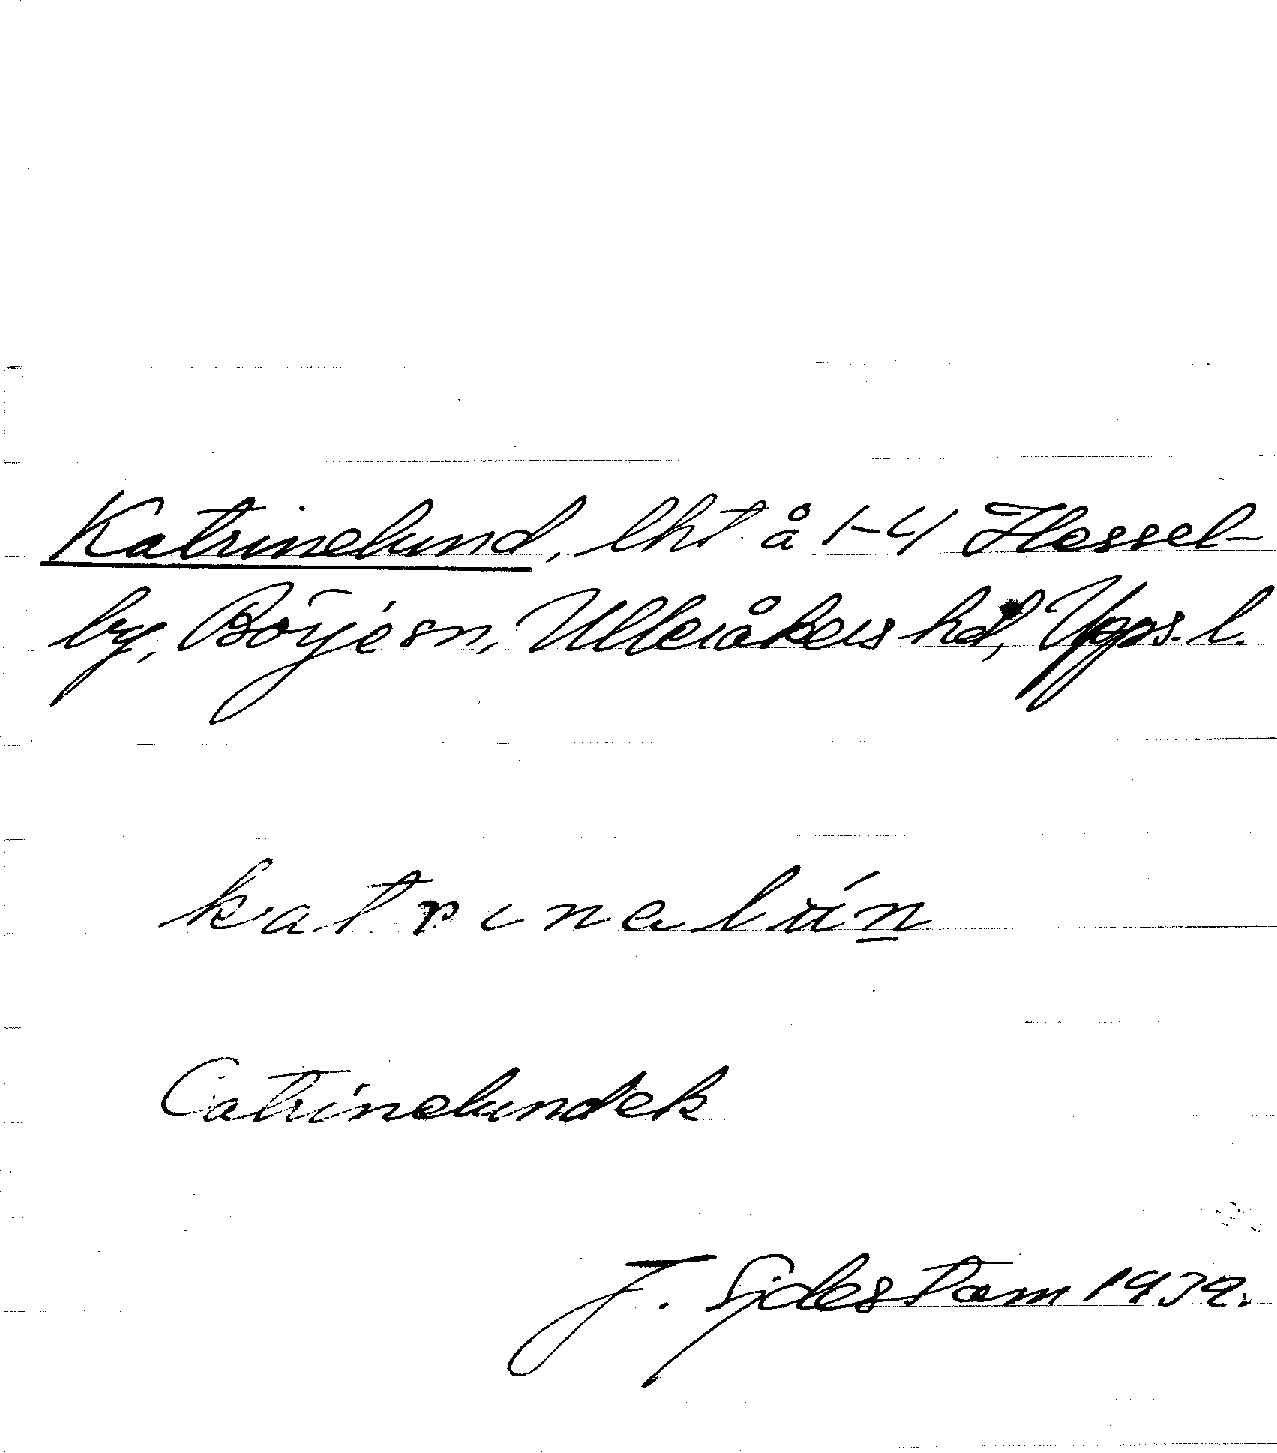 Katrinelund, lht å 1-4 Hessel-
by, Börje sn, Ulleråkers hd, Upps. l.
katrinalún
Catrinelund ek
J. Sjdestam 1939.